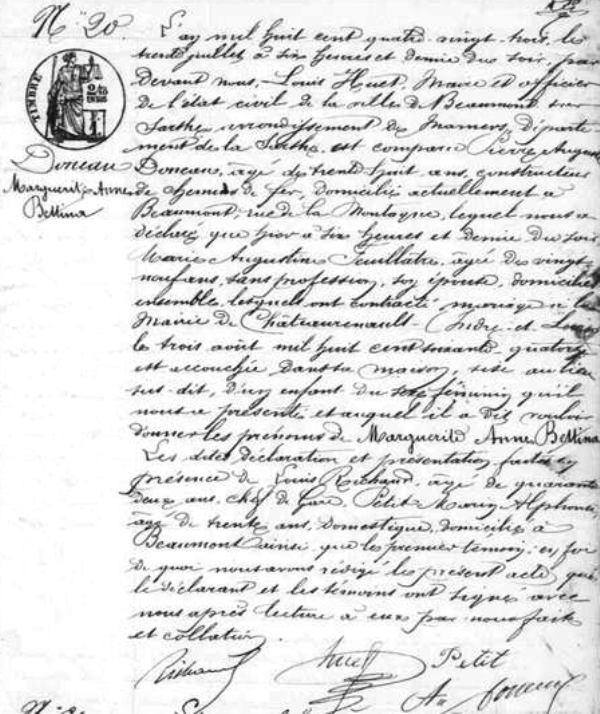 N° 20.
L'an mil huit cent quatre-vingt-trois, le
trente juillet à six heures et demie du soir, par
devant nous, Louis Huet, Maire et officier
de l'état civil de la ville de Beaumont-sur-
Sarthe, arrondissement de Mamers, Départe-
ment de la Sarthe, est comparu Pierre Auguste
TIMBRE
Doneau
Marguerite Anne
Bettina
Doneau, âgé de trente-huit ans, constructeur
de chemin de fer, domicilié actuellement à
Beaumont, rue de la Montagne, lequel nous a
déclaré que hier à six heures et demie du soir
Marie Augustine Feuillâtre, âgé de vingt-
neuf ans, sans profession, son épouse, domiciliés
ensemble, lesquels ont contracté mariage à la
Mairie de Châteaurenault-(Indre-et-Loire)
le trois août mil huit cent soixante-quatorze
est accouchée dans sa maison, sise au lieu
sus-dit, d'un enfant du sexe féminin qu'il
nous a présenté et auquel il a dit vouloir
donner les prénoms de Marguerite Anne Bettina
Les dites déclaration et présentation faites en
présence de Louis Richard, âgé de quarante
deux ans, chef de Gare, Petit Marin Alphonse,
âgé de trente ans, domestique, domicilié à
Beaumont ainsi que le premier témoin; en foi
de quoi nous avons rédigé le présent acte que
le déclarant et les témoins ont signé avec
nous après lecture à eux par nous faite
et collation
Richard Huet Petit
Au Doneau